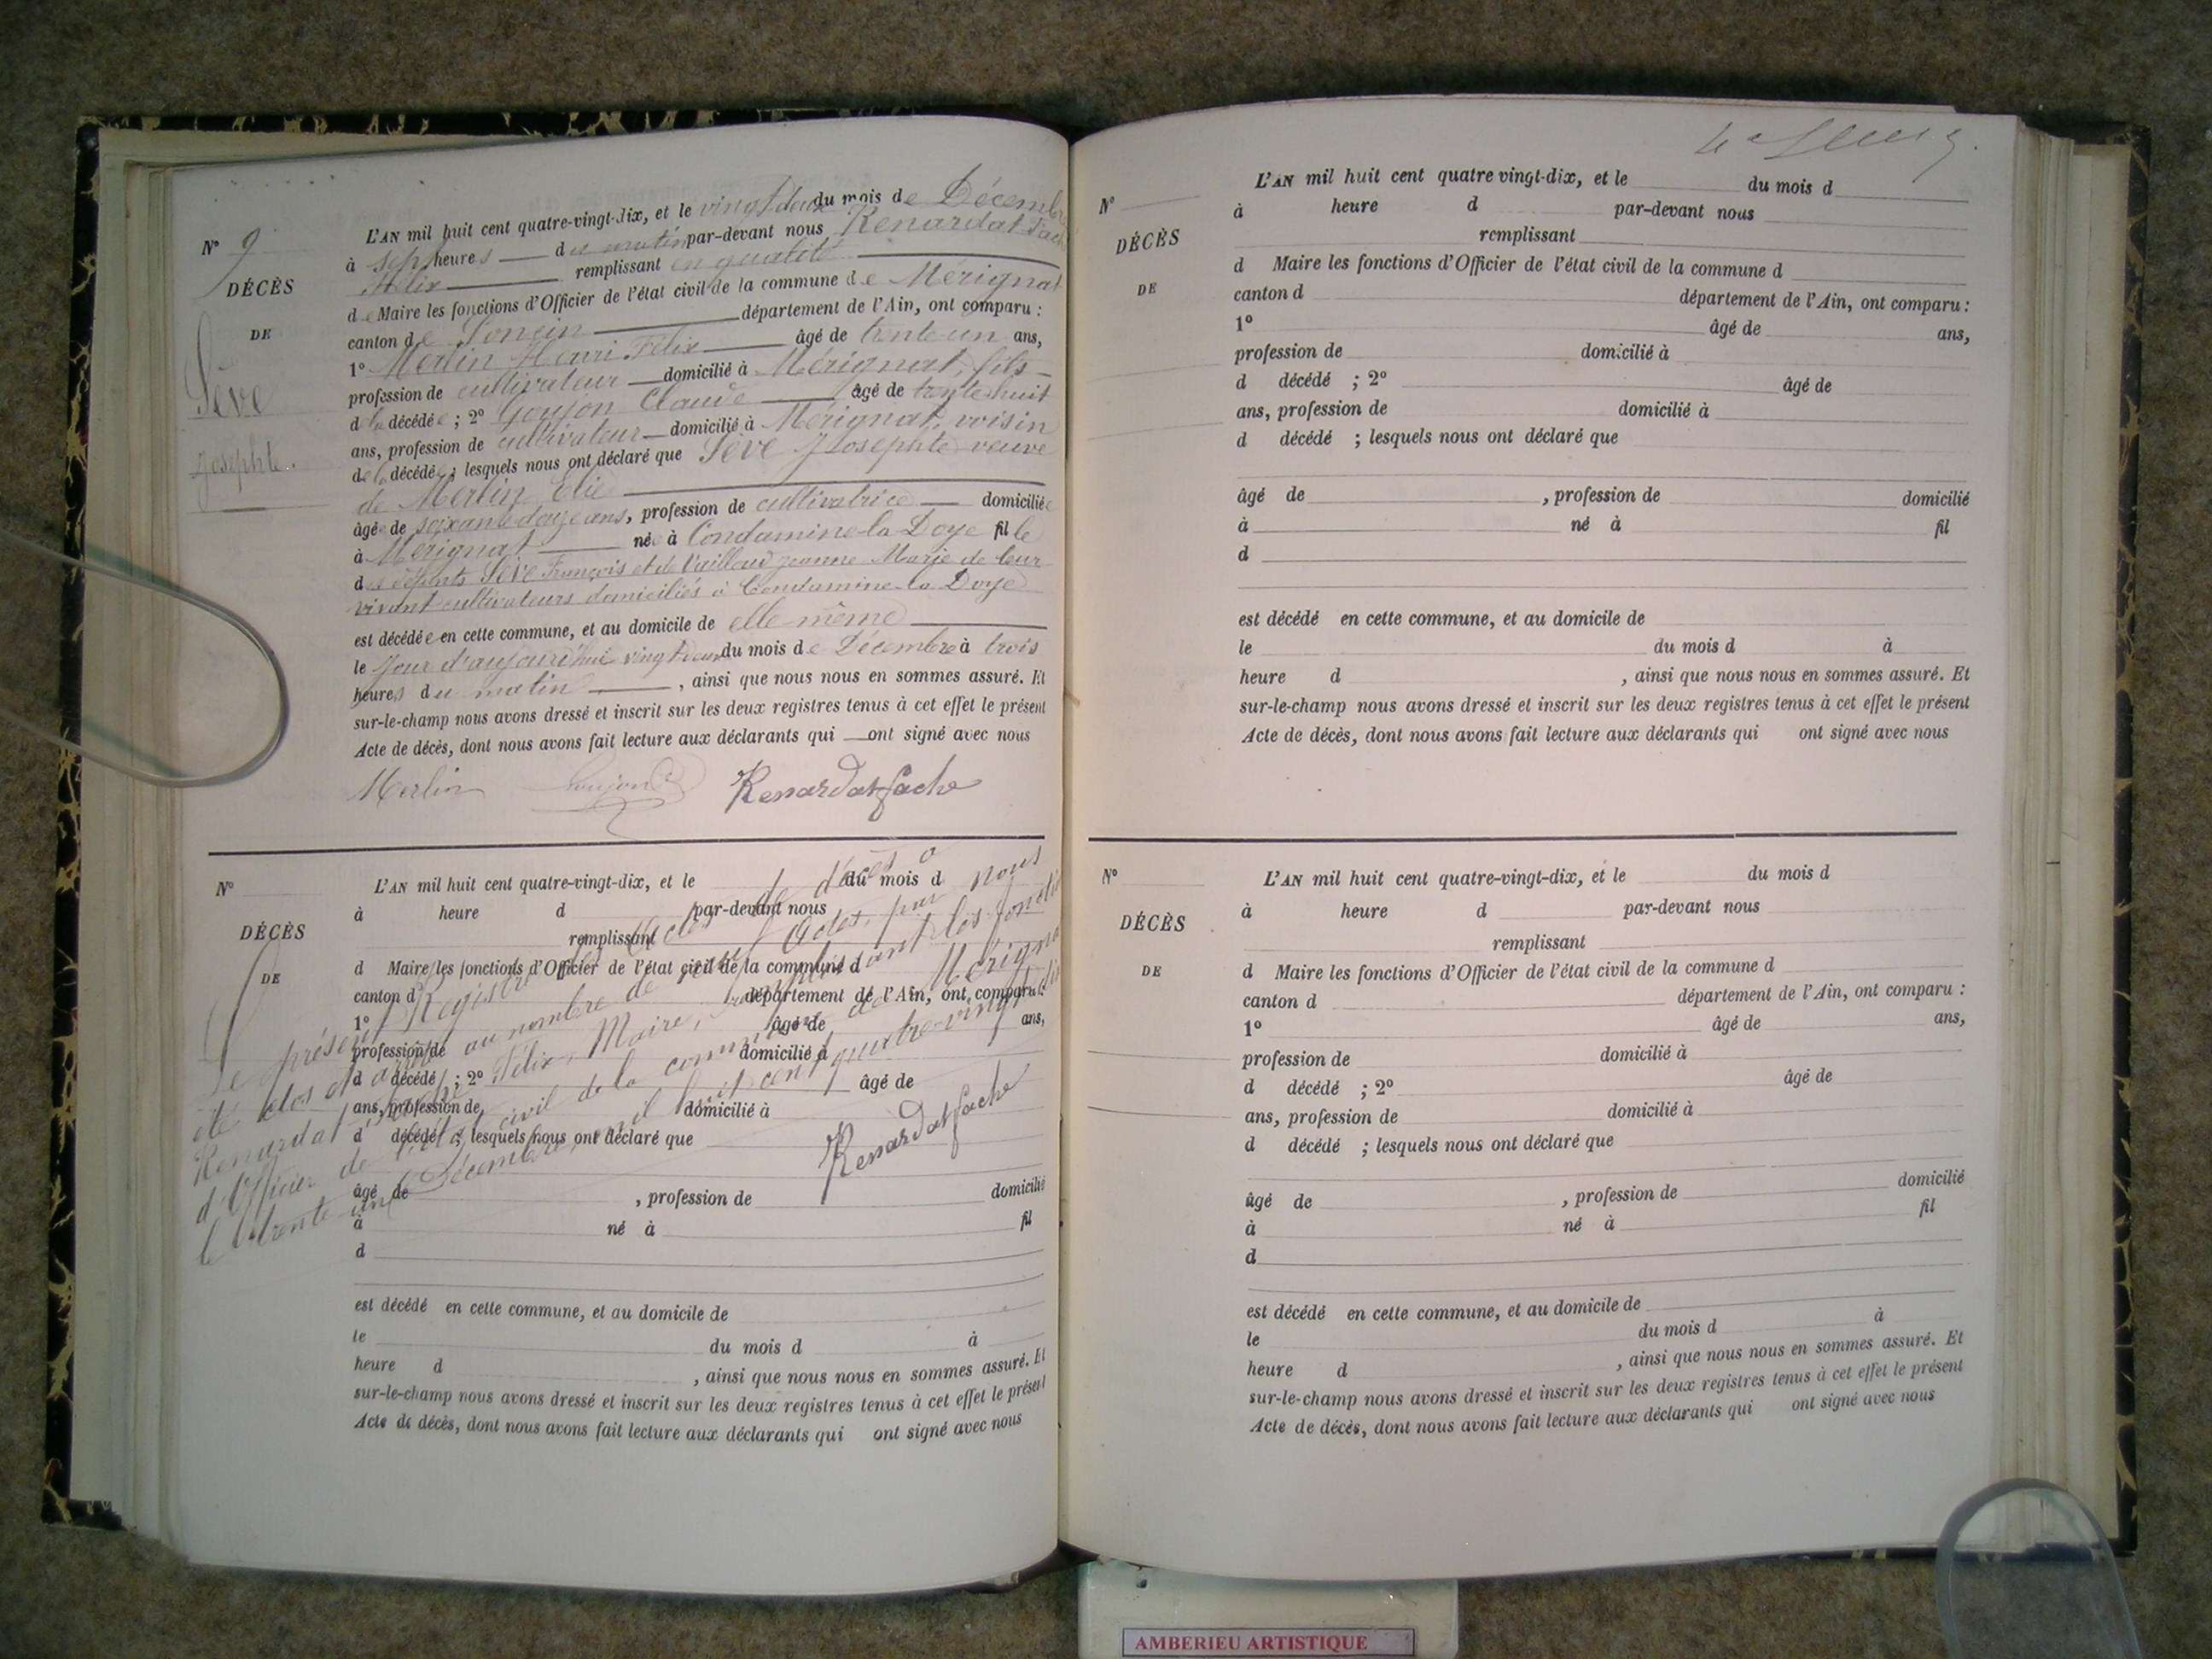 N° 9
DÉCÈS
DE
Sève
Josephte.
L'AN mil huit cent quatre-vingt-dix, et le vingt deux du mois de Décembre
à sept heures du matin par-devant nous Renardat Fache
Félix remplissant en qualité
de Maire les fonctions d'Officier de l'état civil de la commune de Mérignat
canton de Poncin département de l'Ain, ont comparu :
1° Merlin Henri Félix âgé de trente-un ans,
profession de cultivateur domicilié à Mérignat, fils
de la décédée ; 2° Goujon Claude âgé de trente-huit
ans, profession de cultivateur domicilié à Mérignat, voisin
de la décédée ; lesquels nous ont déclaré que Sève Josephte veuve
de Merlin Élie
âgée de soixante douze ans, profession de cultivatrice domiciliée
à Mérignat née à Condamine-la Doye fille
des défunts Sève François et de Vuillaud Jeanne Marie de leur
vivant cultivateurs domiciliés à Condamine-la Doye
est décédée en cette commune, et au domicile de elle-même
le jour d'aujourd'hui vingt deux du mois de Décembre à trois
heures du matin , ainsi que nous nous en sommes assuré. Et
sur-le-champ nous avons dressé et inscrit sur les deux registres tenus à cet effet le présent
Acte de décès, dont nous avons fait lecture aux déclarants qui ont signé avec nous
Merlin Goujon Renardat fache
N°
DÉCÈS
DE
L'AN mil huit cent quatre-vingt-dix, et le du mois d
à heure d par-devant nous
remplissant
d Maire les fonctions d'Officier de l'état civil de la commune d
canton d département de l'Ain, ont comparu :
1° âgé de ans,
profession de domicilié à
d décédé ; 2° âgé de
ans, profession de domicilié à
d décédé ; lesquels nous ont déclaré que
âgé de , profession de domicilié
à né à fil
d
est décédé en cette commune, et au domicile de
le du mois d à
heure d , ainsi que nous nous en sommes assuré. Et
sur-le-champ nous avons dressé et inscrit sur les deux registres tenus à cet effet le présent
Acte de décès, dont nous avons fait lecture aux déclarants qui ont signé avec nous
Le présent Registre des Actes de décès a
été clos et arrêté au nombre de neuf Actes, par nous
Renardat Fache Félix, Maire, remplissant les fonctions
d'Officier de l'état civil de la commune de Mérignat
le trente un Décembre mil huit cent quatre-vingt-dix
Renardat fache
N°
DÉCÈS
DE
L'AN mil huit cent quatre vingt-dix, et le du mois d
à heure d par-devant nous
remplissant
d Maire les fonctions d'Officier de l'état civil de la commune d
canton d département de l'Ain, ont comparu :
1° âgé de ans,
profession de domicilié à
d décédé ; 2° âgé de
ans, profession de domicilié à
d décédé ; lesquels nous ont déclaré que
âgé de , profession de domicilié
à né à fil
d
est décédé en cette commune, et au domicile de
le du mois d à
heure d , ainsi que nous nous en sommes assuré. Et
sur-le-champ nous avons dressé et inscrit sur les deux registres tenus à cet effet le présent
Acte de décès, dont nous avons fait lecture aux déclarants qui ont signé avec nous
N°
DÉCÈS
DE
L'AN mil huit cent quatre-vingt-dix, et le du mois d
à heure d par-devant nous
remplissant
d Maire les fonctions d'Officier de l'état civil de la commune d
canton d département de l'Ain, ont comparu :
1° âgé de ans,
profession de domicilié à
d décédé ; 2° âgé de
ans, profession de domicilié à
d décédé ; lesquels nous ont déclaré que
âgé de , profession de domicilié
à né à fil
d
est décédé en cette commune, et au domicile de
le du mois d à
heure d , ainsi que nous nous en sommes assuré. Et
sur-le-champ nous avons dressé et inscrit sur les deux registres tenus à cet effet le présent
Acte de décès, dont nous avons fait lecture aux déclarants qui ont signé avec nous
AMBERIEU ARTISTIQUE